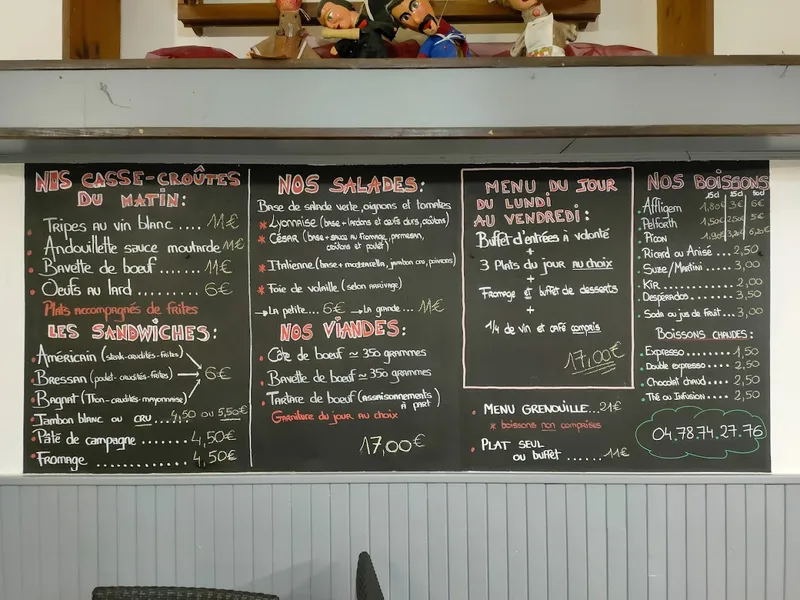 NOS CASSE-CROÛTES
DU MATIN:
Tripes au vin blanc .... 11€
Andouillette sauce moutarde 11€
Bavette de boeuf ....... 11€
Oeufs au lard ......... 6€
Plats accompagnés de frites
LES SANDWICHES:
Américain (steak-crudités-frites)
Bressan (poulet-crudités-frites) → 6€
Bagnat (Thon-crudités-mayonnaise)
Jambon blanc ou CRU ... 4,50 ou 5,50€
Pâté de campagne ........ 4,50€
Fromage ................ 4,50€
NOS SALADES:
Base de salade verte, oignons et tomates
* Lyonnaise (base+lardons et oeufs durs, croûtons)
* César (base+sauce au fromage, parmesan,
croûtons et poulet)
* Italienne (base+mozzarella, jambon cru, poivrons)
* Foie de volaille (selon arrivage)
→ La petite... 6€ → La grande... 11€
NOS VIANDES:
Côte de boeuf ≃ 350 grammes
Bavette de boeuf ≃ 350 grammes
Tartare de boeuf (assaisonnements
à part)
Garniture du jour au choix
17,00€
MENU DU JOUR
DU LUNDI
AU VENDREDI:
Buffet d'entrées à volonté
+
3 Plats du jour au choix
+
Fromage et buffet de desserts
+
1/4 de vin et café compris
17,00€
MENU GRENOUILLE...21€
* boissons non comprises
PLAT SEUL
ou buffet ....... 11€
NOS BOISSONS
25cl 50cl
Affligem 1,80€ 3€ 6€
Pelforth 1,50€ 2,50€ 5€
Picon 1,90€
Ricard ou Anisé... 2,50
Suze/Martini..... 3,00
Kir ............. 2,00
Desperados....... 3,50
Soda ou jus de fruit... 3,00
BOISSONS CHAUDES:
Expresso.......... 1,50
Double expresso .... 2,50
Chocolat chaud...... 2,50
Thé ou Infusion..... 2,50
04.78.74.27.76